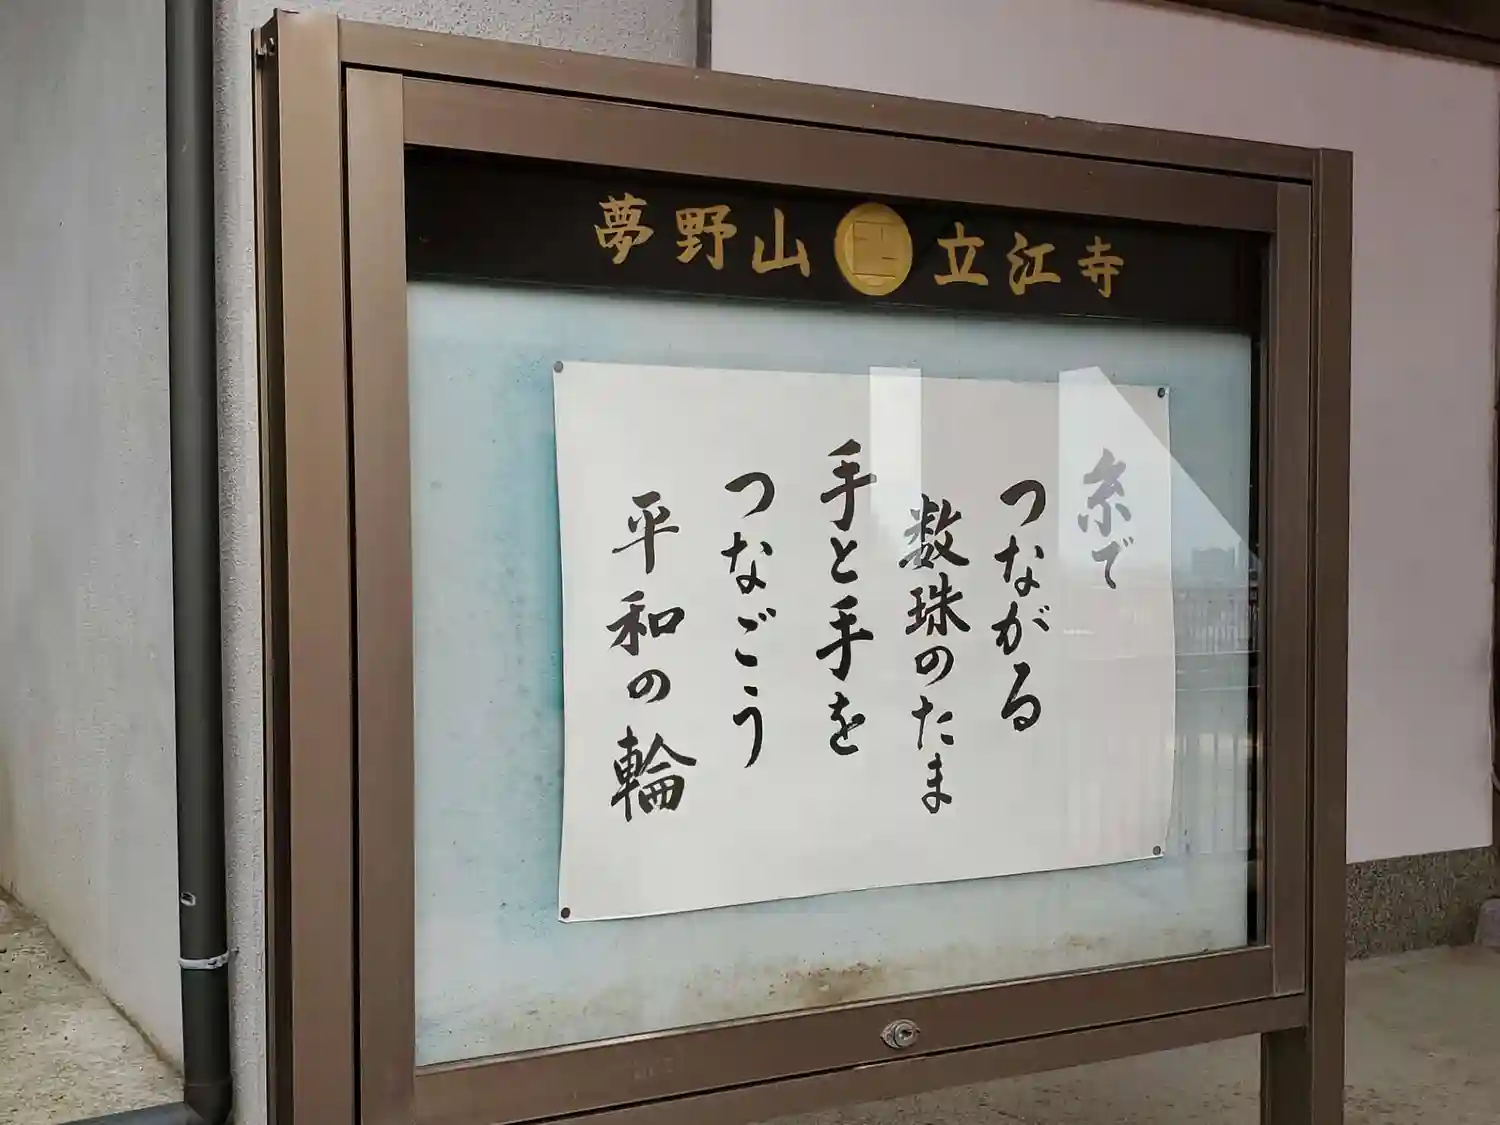 夢野山 立江寺
糸で
つながる
数珠のたま
手と手を
つなごう
平和の輪